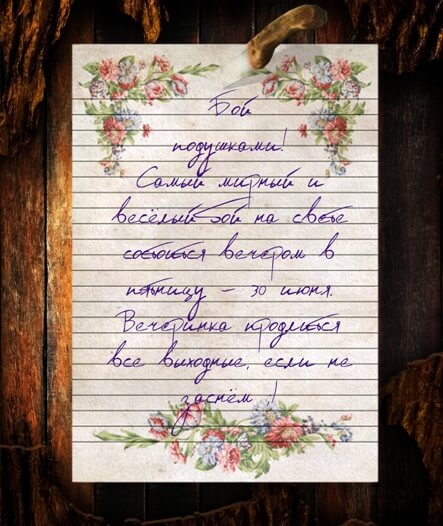 Бой
подушками!
Самый мирный и
весёлый бой на свете
состоится вечером в
пятницу – 30 июня.
Вечеринка продлится
все выходные, если не
заснём ;)